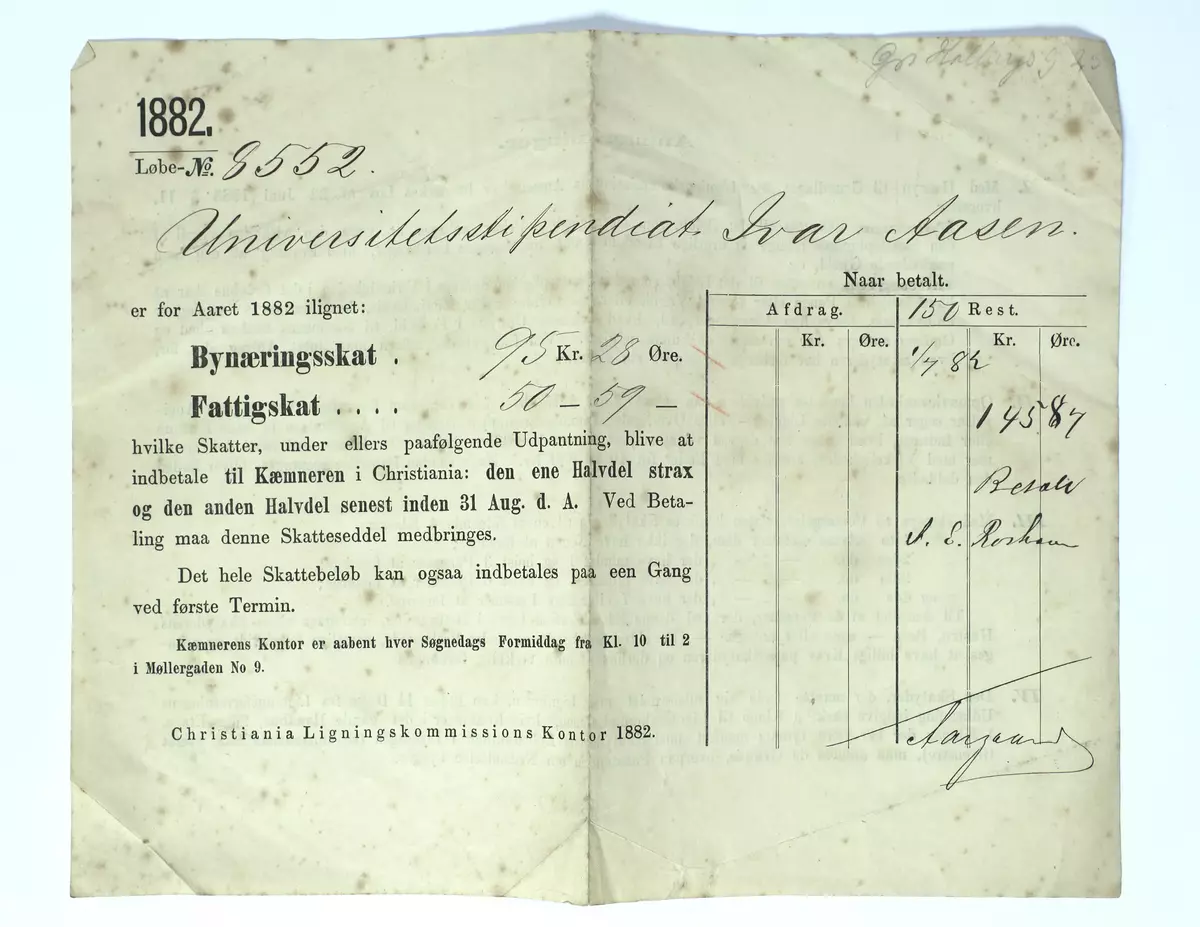 1882.
Løbe-No. 8552.
Universitetsstipendiat Ivar Aasen.
er for Aaret 1882 ilignet:
Bynæringsskat . 95 Kr. 28 Øre.
Fattigskat . . . . 50 — 59 —
hvilke Skatter, under ellers paafølgende Udpantning, blive at
indbetale til Kæmneren i Christiania: den ene Halvdel strax
og den anden Halvdel senest inden 31 Aug. d. A. Ved Beta-
ling maa denne Skatteseddel medbringes.
Det hele Skattebeløb kan ogsaa indbetales paa een Gang
ved første Termin.
Kæmnerens Kontor er aabent hver Søgnedags Formiddag fra Kl. 10 til 2
i Møllergaden No 9.
Christiania Ligningskommissions Kontor 1882.
Naar betalt.
Afdrag. 150 Rest.
Kr. Øre. Kr. Øre.
1/7 82
145 87
Betalt
Aargaard